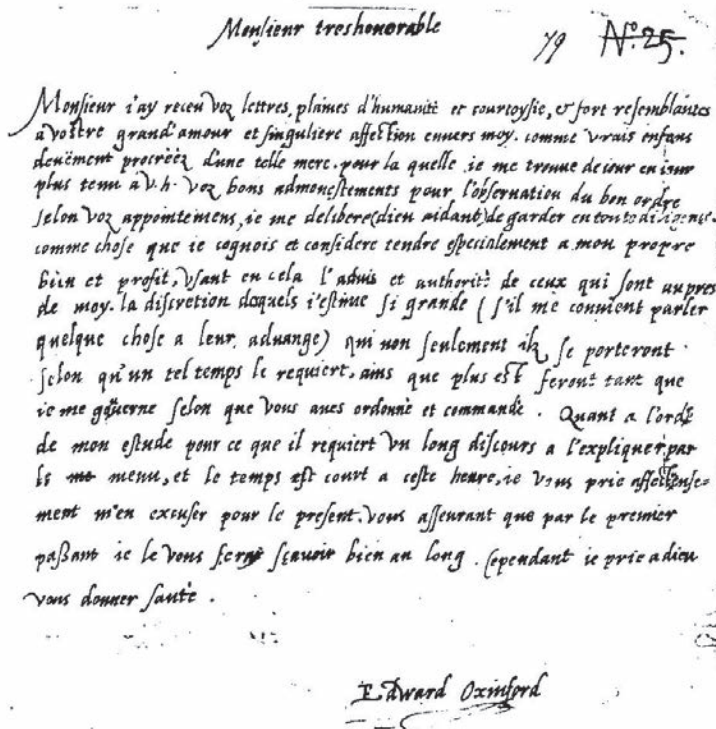 Monsieur treshonorable
79 No. 25.
Monsieur i'ay receu voz lettres, plaines d'humanité et courtoysie, & fort resemblantes
a vostre grand'amour et singuliere affection enuers moy. comme vrais enfans
deuëment procreéz d'une telle mere. pour la quelle ie me trouue de iour en iour
plus tenu à v.h. voz bons admonestements pour l'obseruation du bon ordre
selon voz appointemens, ie me delibere (dieu aidant) de garder en toute diligence
comme chose que ie cognois et considere tendre especialement a mon propre
bien et profit, vsant en cela l'aduis et authorité de ceux qui sont aupres
de moy. la discretion desquels i'estime si grande (s'il me conuient parler
quelque chose a leur aduange) qui non seulement ilz se porteront
selon qu'un tel temps le requiert, ains que plus est feront tant que
ie me gouuerne selon que vous aues ordonné et commandé. Quant a l'ordre
de mon estude pour ce que il requiert vn long discours a l'expliquer par
le menu, et le temps est court a ceste heure, ie vous prie affectueuse=
ment m'en excuser pour le present. vous asseurant que par le premier
passant ie le vous feray sçauoir bien au long. Cependant ie prie a dieu
vous donner santé.
Edward Oxinford